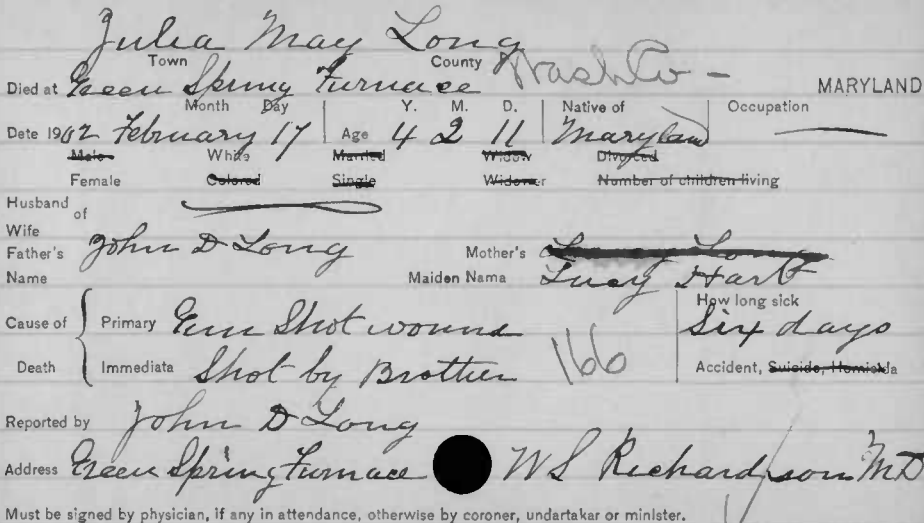 Julia May Long
Town County
Died at Green Spring Furnace Wash Co - MARYLAND
Month Day Y. M. D. Native of Occupation
Date 1902 February 17 Age 4 2 11 Maryland
Male White Married Widow Divorced
Female Colored Single Widower Number of children living
Husband of
Wife
Father's Name John D Long Mother's Maiden Name Lucy Hart
Cause of Death Primary Gun Shot wound How long sick Six days
Immediate Shot by Brother 166 Accident, Suicide, Homicide
Reported by John D Long
Address Green Spring Furnace W S Richardson MD
Must be signed by physician, if any in attendance, otherwise by coroner, undertaker or minister.